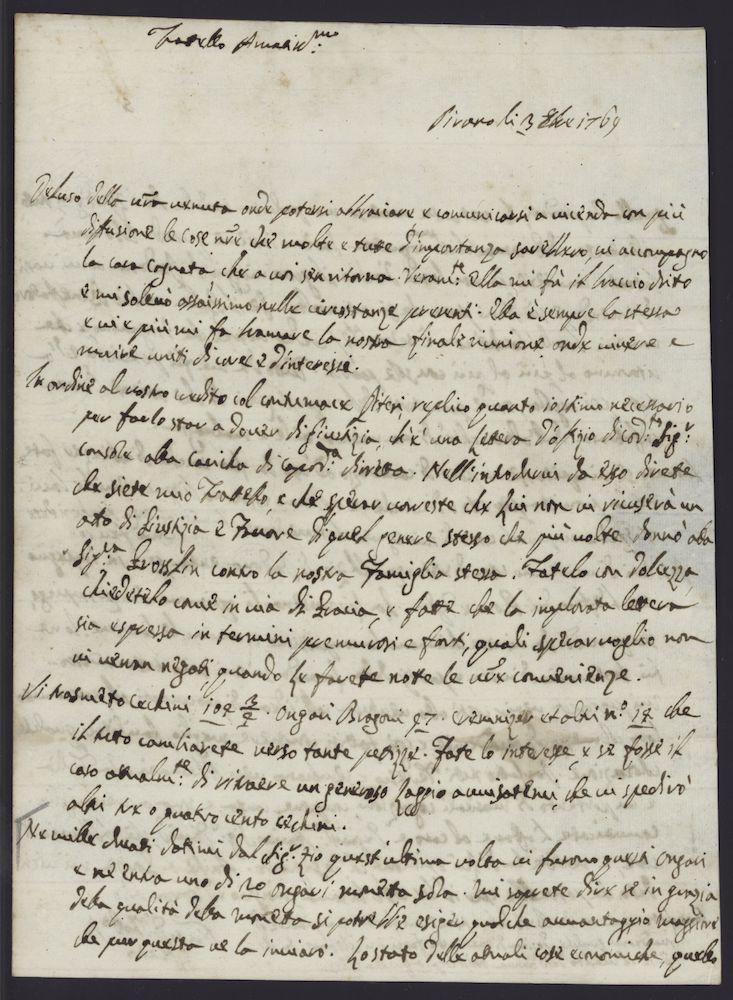 Fratello Amatis.mo
Pirano li 3 8bre 1769
Deluso della vra venuta onde potersi abbraciare e comunicarsi a vicenda con più
diffusione le cose nre che molte e tutte d'importanza sarebbero, vi accompagno
la cara Cognata che a voi sen ritorna. Veram.te Ella mi fù il braccio drito
e mi solevò assaissimo nelle circostanze presenti. Ella è sempre la stessa
e vie più mi fa bramare la nostra finale riunione onde vivere e
morire uniti di core e d'interesse.
In ordine al vostro credito col contumace replico quanto io stimo necessario
per farlo star a dover di Giustizia, ch'è una Lettera d'ofizio di cod.to Sig.r
console alla Carica di Capod.a diretta. Nell'introdurvi da esso direte
che siete mio Fratello, e che sperar vorreste che Lui non vi ricuserà un
atto di Giustizia e Favore di quel genere stesso che più volte donnò alla
Sig.ra contro la nostra Famiglia stessa. Fatelo con dolcezza
chiedetelo come in via di Grazia, e fatte che la implorata lettera
sia espressa in termini premurosi e forti, quali sperar voglio non
vi venan negati quando Le farete notte le vre convenienze.
Vi trasmeto cechini 102 Ongari 97. et altri n.o 18 che
il tuto cambiarete verso tante petizze. Fate lo interesse, e se fosse il
caso atualm.te di ritraere un generoso Laggio avvisatemi, che vi spedirò
altri tre o quatro cento cechini.
Ne mille ducati datimi dal Sig.r Zio quest'ultima volta vi furono questi Ongari
e ne entra uno di 20 ongari moneta sola. Mi saprete dire se in grazia
della qualità della moneta si potrebbe esiger qualche avantaggio maggiore
che pur questa ve la inviarò. Lo stato delle atuali cose economiche, quello